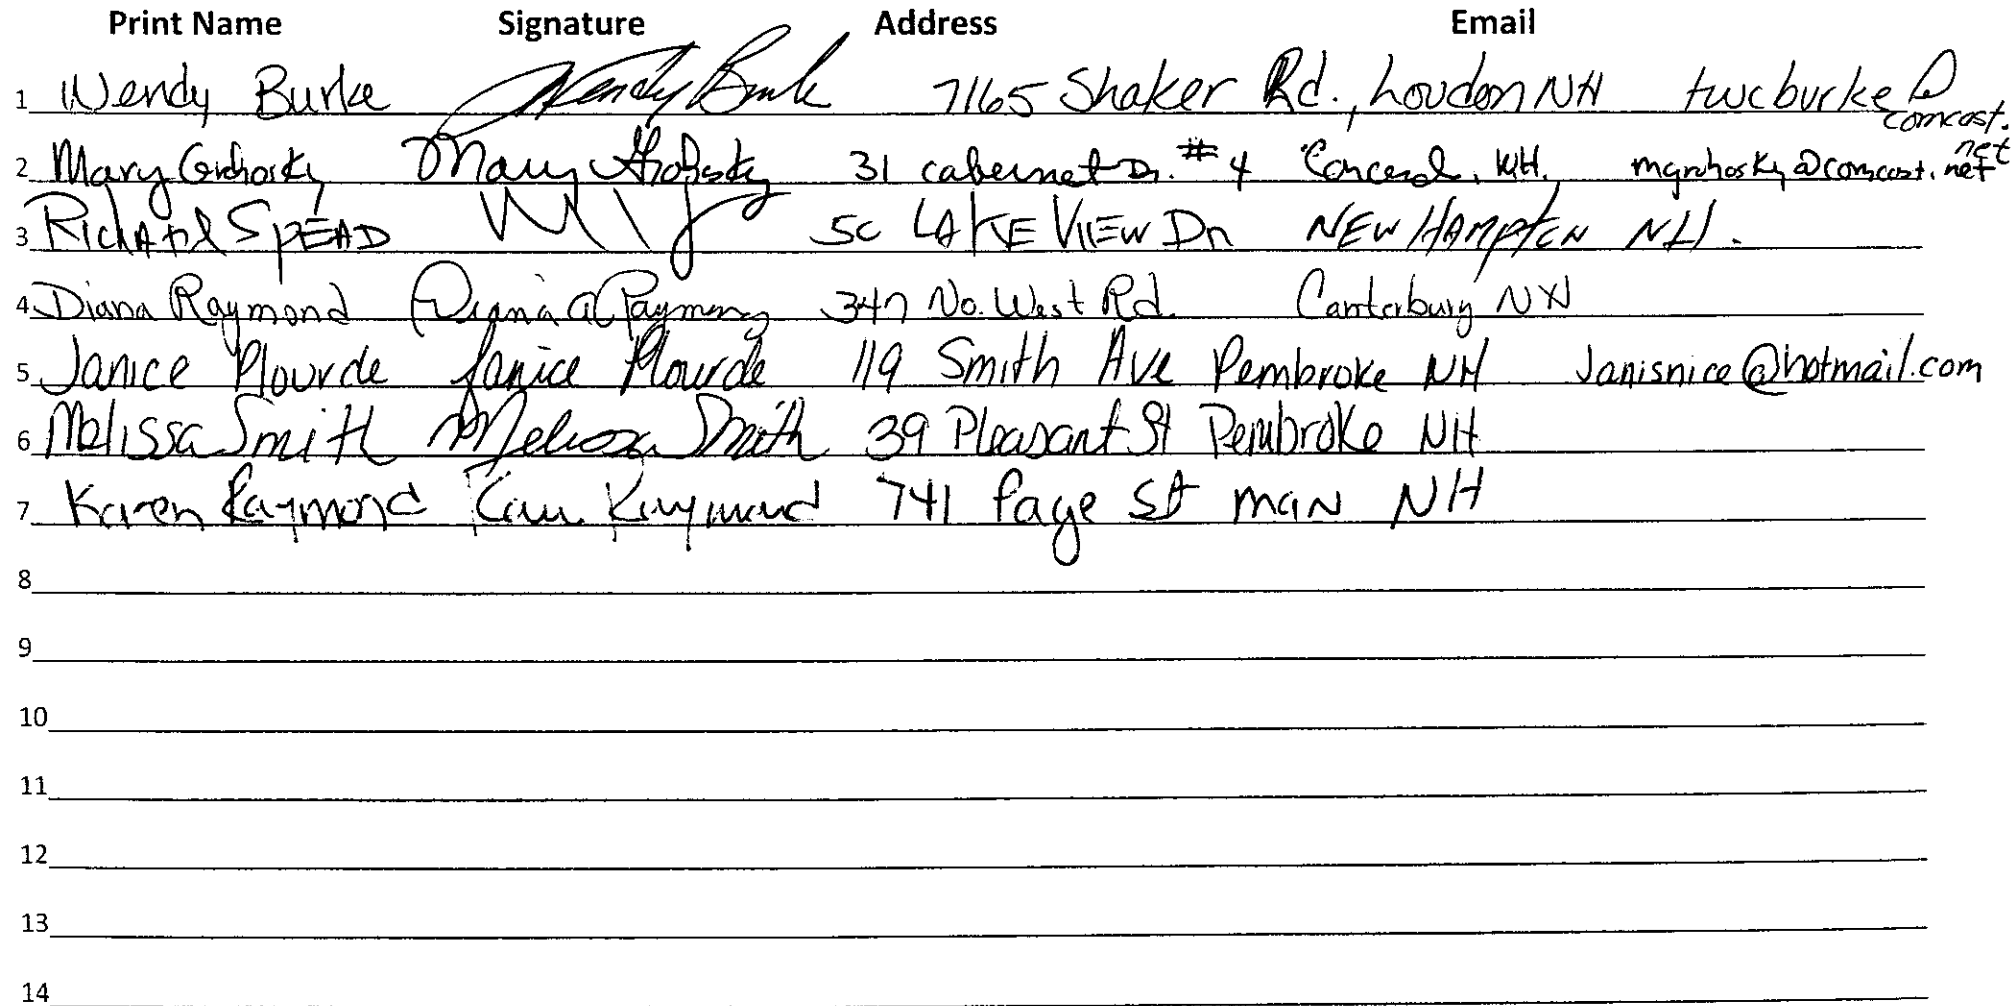 Print Name Signature Address Email
1 Wendy Burke Wendy Burke 7165 Shaker Rd., Loudon NH twcburke@
comcast.
net
2 Mary Grohosky Mary Grohosky 31 cabernet Dr. #4 Concord, NH. mgrohosky@comcast.net
3 RichARd SpEAD 5C LAKE VIEW DR NEW HAMPTON NH.
4 Diana Raymond Diana a Raymond 347 No. West Rd. Canterbury NH
5 Janice Plourde Janice Plourde 119 Smith Ave Pembroke NH Janisnice@hotmail.com
6 Melissa Smith Melissa Smith 39 Pleasant St Pembroke NH
7 Karen Raymond Karen Raymond 741 Page St maN NH
8
9
10
11
12
13
14